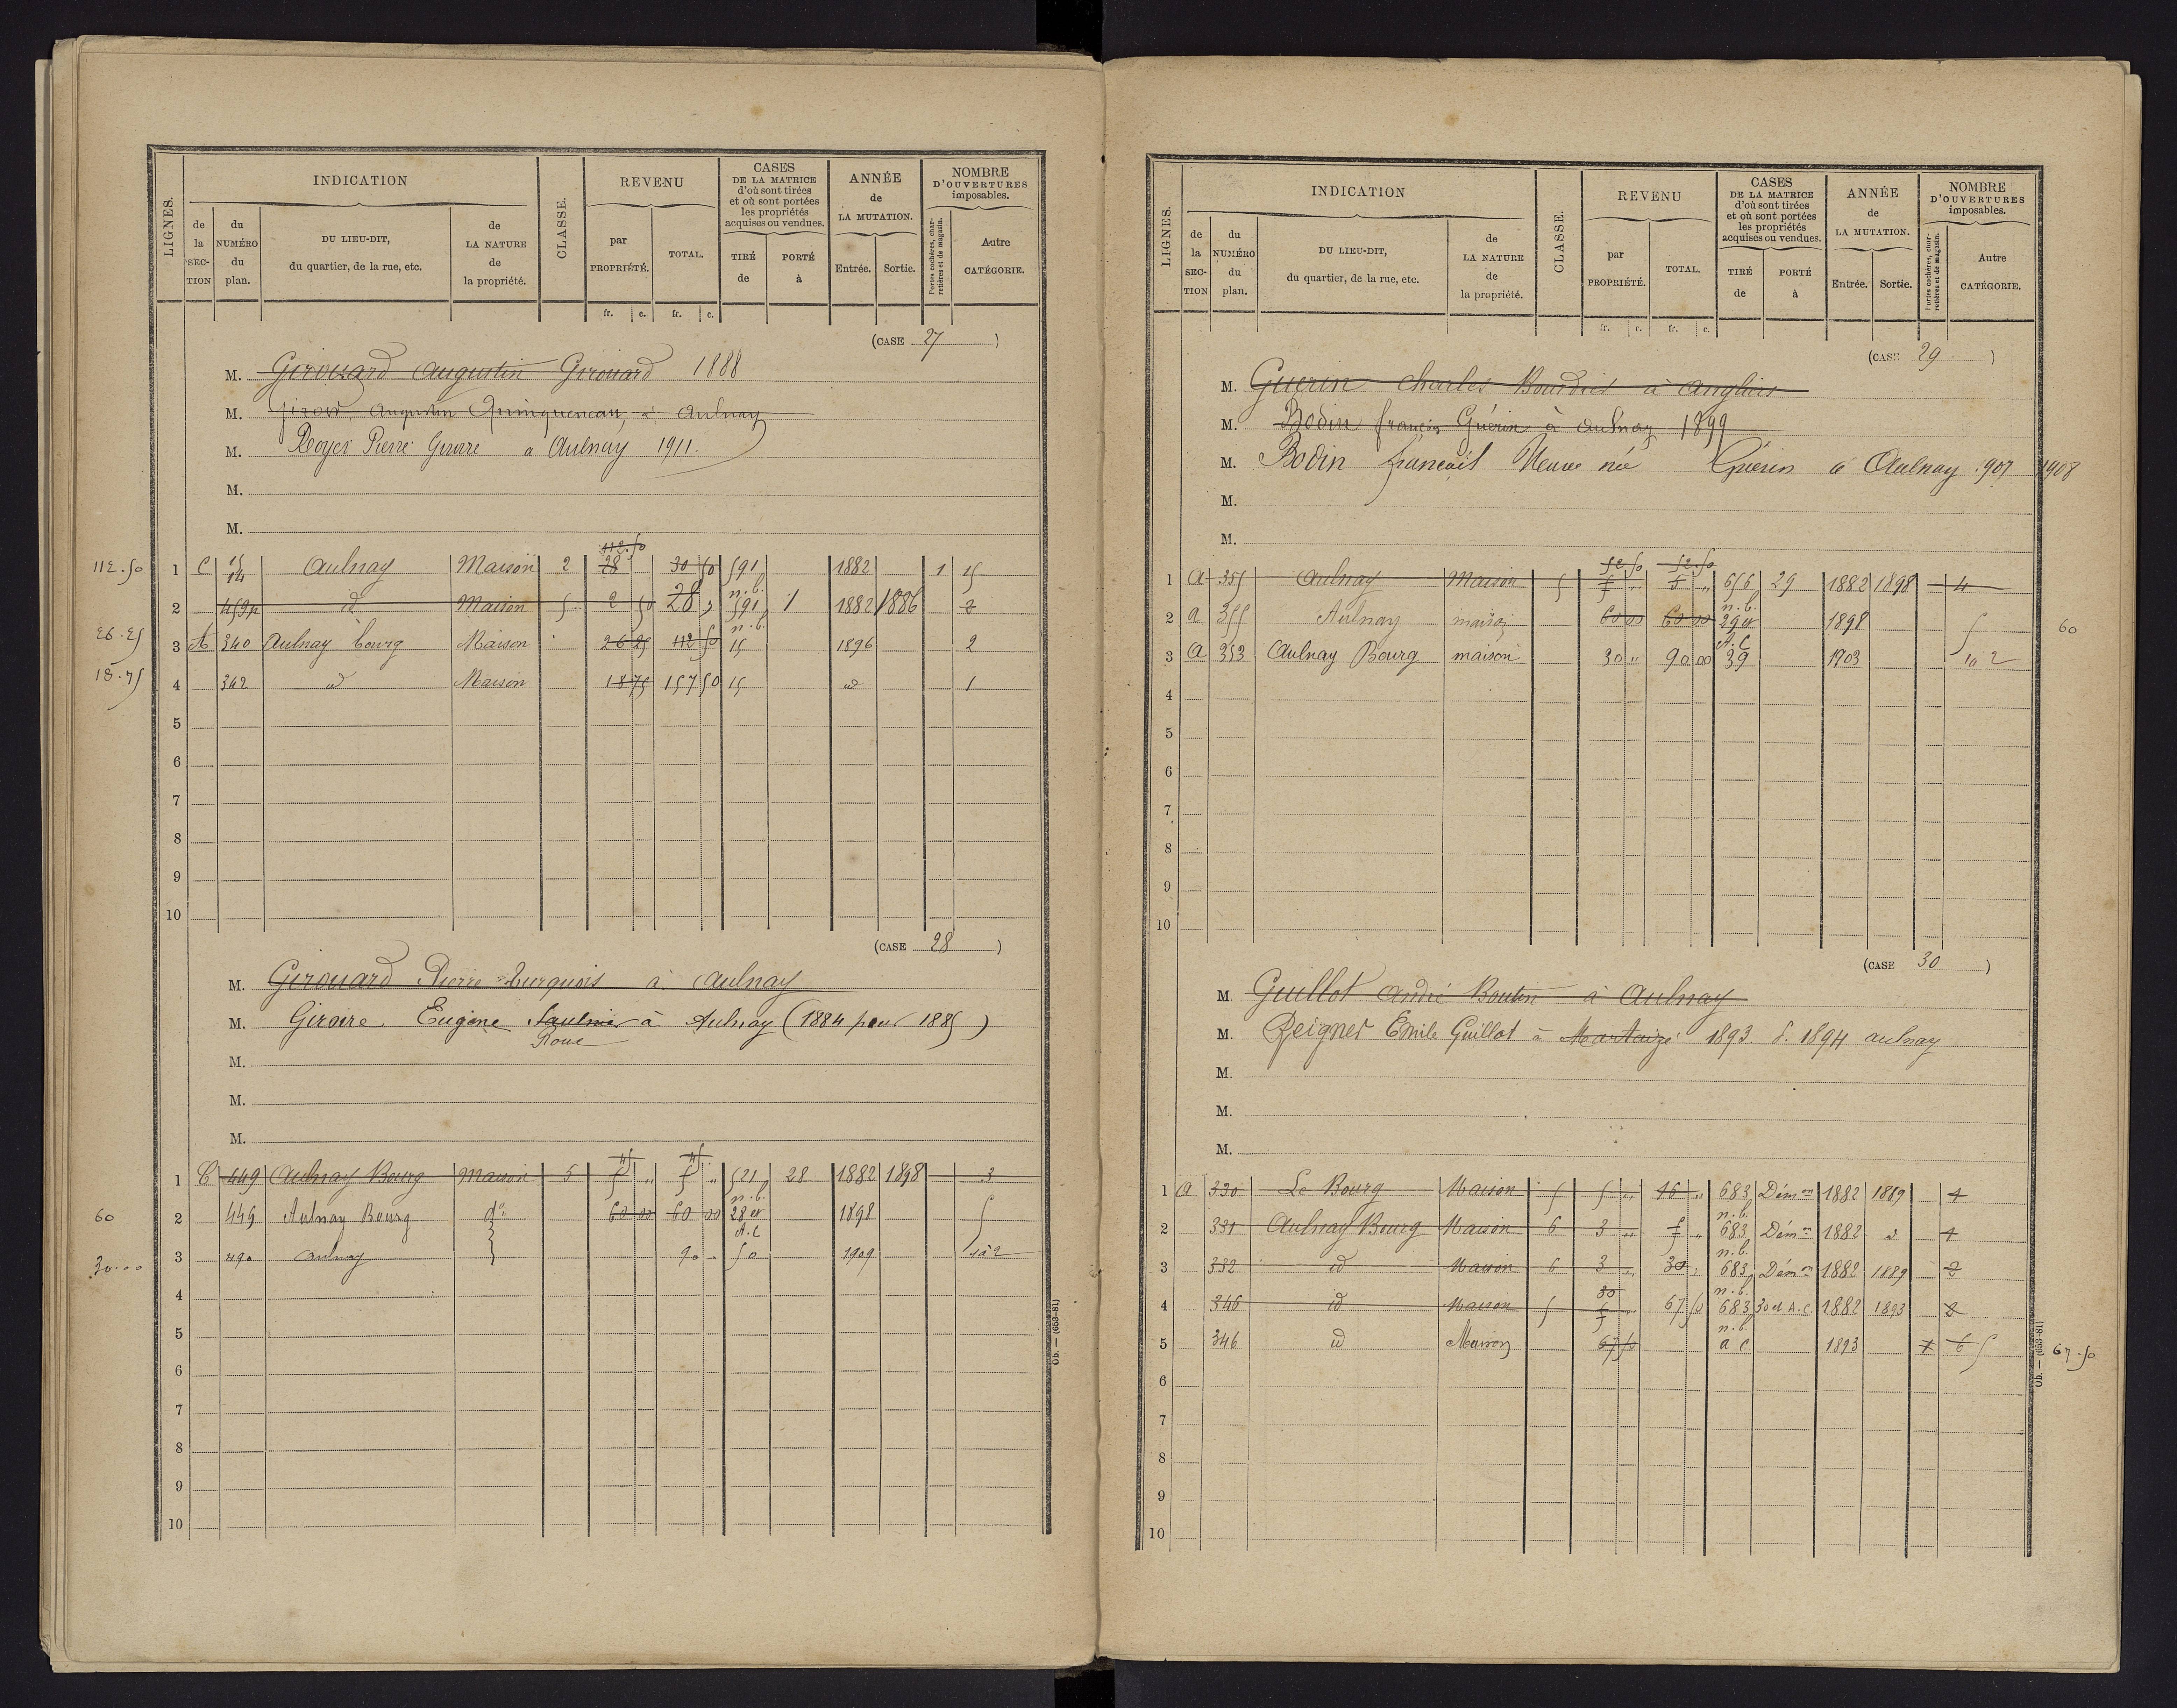 LIGNES.
INDICATION
de la SECTION
du NUMÉRO du plan.
DU LIEU-DIT, du quartier, de la rue, etc.
de LA NATURE de la propriété.
CLASSE.
REVENU
par PROPRIÉTÉ.
TOTAL.
CASES DE LA MATRICE d'où sont tirées et où sont portées les propriétés acquises ou vendues.
TIRÉ de
PORTÉ à
ANNÉE de LA MUTATION.
Entrée.
Sortie.
NOMBRE D'OUVERTURES imposables.
Portes cochères, charretières et de magasin.
Autre CATÉGORIE.
fr. c. fr. c.
(CASE 27)
M. Girouard Augustin Girouard 1888
M. Giroir Augustin Quinqueneau, à Aulnay
M. Royer Pierre Giroire à Aulnay 1911.
M.
M.
112.50
112.50 1 C 15 14 Aulnay Maison 2 28 30 50 591 1882 1 15
2 459p id Maison 5 2 50 28 " n.b. 591 1 1882 1886 2
26.25 3 A 340 Aulnay bourg Maison 26 25 112 50 n.b. 15 1896 2
18.75 4 342 id Maison 18 75 157 50 15 id 1
5
6
7
8
9
10
(CASE 28)
M. Girouard Pierre Turquois à Aulnay
M. Giroire Eugène Saulnier à Aulnay (1884 pour 1885)
Roue
M.
M.
M.
45 45
1 C 449 Aulnay Bourg Maison 5 5 " 5 " 521 28 1882 1898 3
60 2 449 Aulnay Bourg do 60 00 60 00 n.b. 28 et A.C 1898 5
30.00 3 490 Aulnay 90 - 50 1909 1à2
4
5
6
7
8
9
10
Ob. — (653-81)
LIGNES.
INDICATION
de la SECTION
du NUMÉRO du plan.
DU LIEU-DIT, du quartier, de la rue, etc.
de LA NATURE de la propriété.
CLASSE.
REVENU
par PROPRIÉTÉ.
TOTAL.
CASES DE LA MATRICE d'où sont tirées et où sont portées les propriétés acquises ou vendues.
TIRÉ de
PORTÉ à
ANNÉE de LA MUTATION.
Entrée.
Sortie.
NOMBRE D'OUVERTURES imposables.
Portes cochères, charretières et de magasin.
Autre CATÉGORIE.
fr. c. fr. c.
(CASE 29)
M. Guérin Charles Bourdier à Angliers
M. Bodin François Guérin à Aulnay 1899
M. Bodin françois Veuve née Guérin à Aulnay 1907 1908
M.
M.
52.50 52.50
1 A 355 Aulnay Maison 5 5 " 5 " 656 29 1882 1898 4
2 A 355 Aulnay maison 60 00 60 00 n.b. 29 et A.C 1898 5 60
3 A 353 Aulnay Bourg maison 30 " 90 00 39 1903 1à 2
4
5
6
7
8
9
10
(CASE 30)
M. Guillot André Boutin à Aulnay
M. Peignet Emile Guillot à Martaizé 1893. P. 1894 aulnay
M.
M.
M.
1 A 330 Le Bourg Maison 5 5 " 16 " 683 Démon 1882 1889 4
2 331 Aulnay Bourg Maison 6 3 " 5 " n.b. 683 Démon 1882 d 1
3 332 id Maison 6 3 " 30 " n.b. 683 Démon 1882 1889 2
30
4 346 id Maison 5 5 " 67 50 n.b. 683 30 et A.C. 1882 1893 2
5 346 id Maison 67 50 n.b. a c 1893 1 6 5 67.50
6
7
8
9
10
Ob. — (653-81)